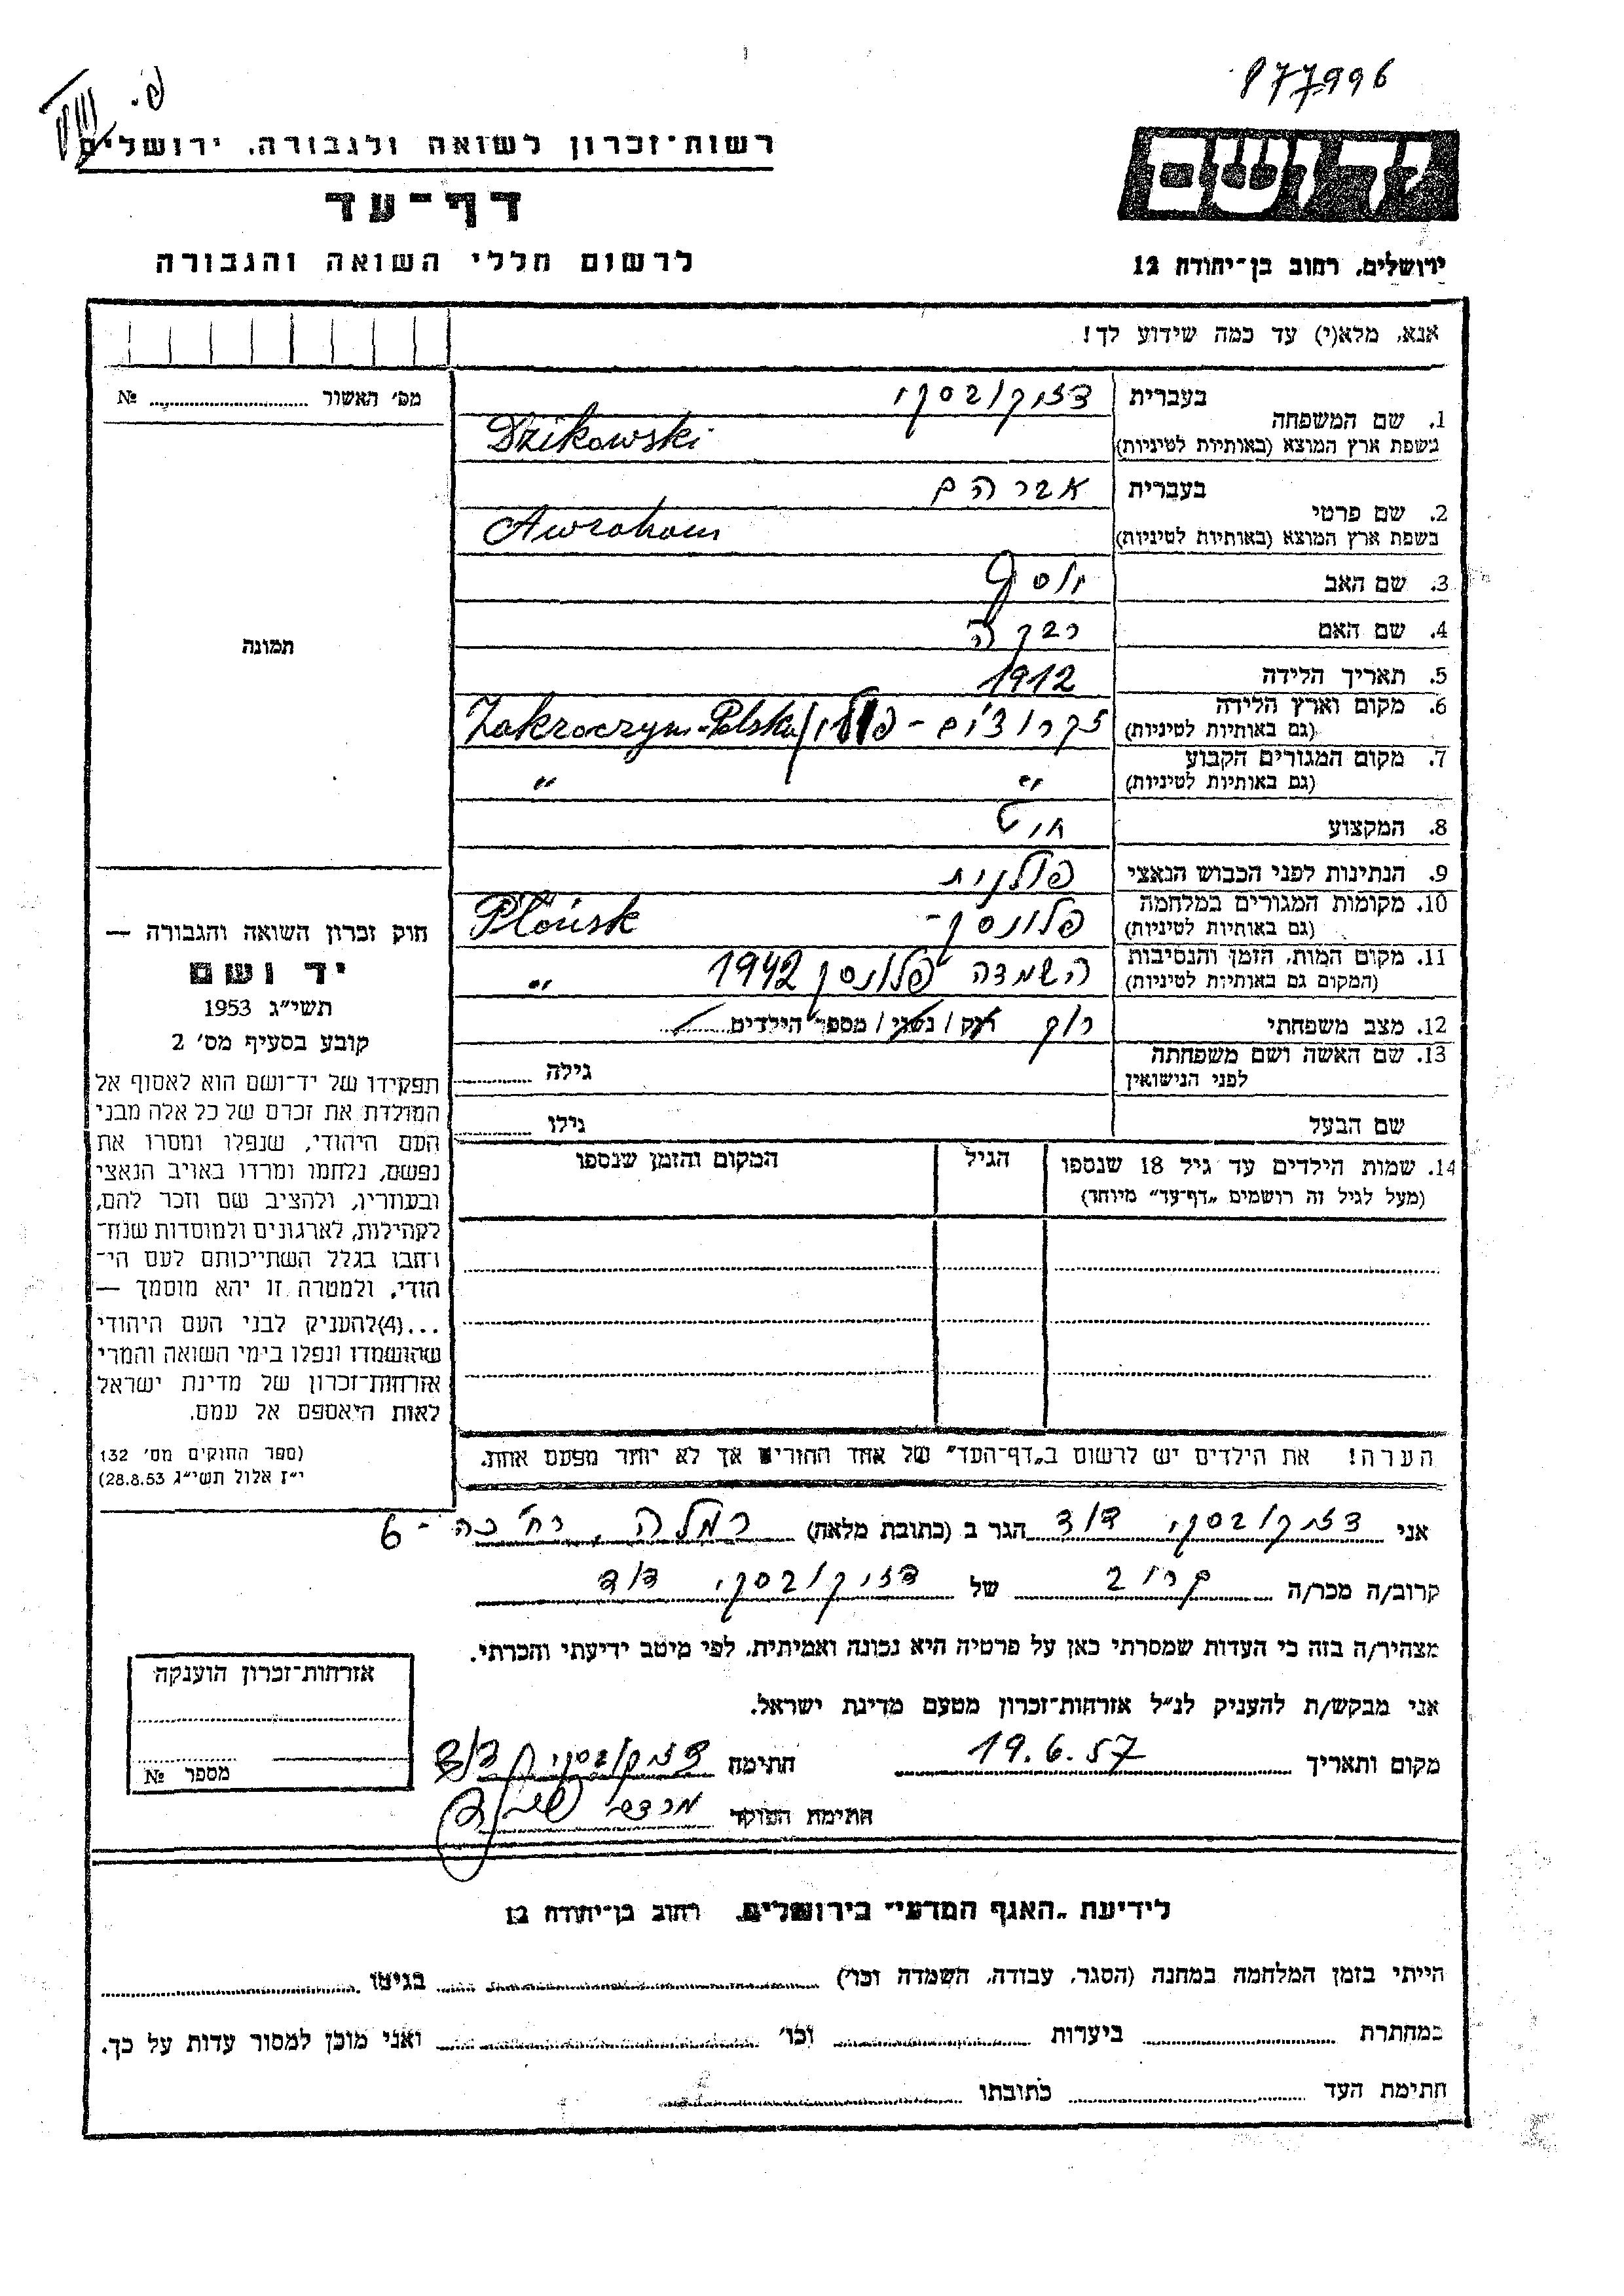 877996
פ.
רשות־זכרון לשואה ולגבורה, ירושלים
דף־עד
לרשום חללי השואה והגבורה
יד ושם
ירושלים, רחוב בן־יהודה 12
אנא, מלא(י) עד כמה שידוע לך!
מס׳ האשור № ........
1. שם המשפחה בעברית דזיקובסקי
בשפת ארץ המוצא (באותיות לטיניות) Dzikowski
2. שם פרטי בעברית אברהם
בשפת ארץ המוצא (באותיות לטיניות) Awraham
3. שם האב יוסף
4. שם האם רבקה
5. תאריך הלידה 1912
6. מקום וארץ הלידה (גם באותיות לטיניות) זקרוצים - פולין / Zakroczym-Polska
7. מקום המגורים הקבוע (גם באותיות לטיניות) " "
8. המקצוע חיט
9. הנתינות לפני הכבוש הנאצי פולנית
10. מקומות המגורים במלחמה (גם באותיות לטיניות) פלונסק - Płońsk
11. מקום המות, הזמן והנסיבות (המקום גם באותיות לטיניות) השמדה פלונסק 1942 "
12. מצב משפחתי רוק רוק / נשוי / מספר הילדים ........
13. שם האשה ושם משפחתה לפני הנישואין גילה ........
שם הבעל גילו ........
14. שמות הילדים עד גיל 18 שנספו הגיל המקום והזמן שנספו
(מעל לגיל זה רושמים „דף־עד" מיוחד)
הערה! את הילדים יש לרשום ב„דף־העד" של אחד ההורים אך לא יותר מפעם אחת.
תמונה
חוק זכרון השואה והגבורה —
יד ושם
תשי״ג 1953
קובע בסעיף מס׳ 2
תפקידו של יד־ושם הוא לאסוף אל
המולדת את זכרם של כל אלה מבני
העם היהודי, שנפלו ומסרו את
נפשם, נלחמו ומרדו באויב הנאצי
ובעוזריו, ולהציב שם וזכר להם,
לקהילות, לארגונים ולמוסדות שנח־
רבו בגלל השתייכותם לעם הי־
הודי, ולמטרה זו יהא מוסמך —
...(4) להעניק לבני העם היהודי
שהושמדו ונפלו בימי השואה והמרי
אזרחות־זכרון של מדינת ישראל
לאות היאספם אל עמם.
(ספר החוקים מס׳ 132
י״ז אלול תשי״ג 28.8.53)
אני דזיקובסקי דוד הגר ב (כתובת מלאה) רמלה, רח׳ כה - 6
קרוב/ה מכר/ה קרוב של דזיקובסקי דוד
מצהיר/ה בזה כי העדות שמסרתי כאן על פרטיה היא נכונה ואמיתית, לפי מיטב ידיעתי והכרתי.
אני מבקש/ת להעניק לנ״ל אזרחות־זכרון מטעם מדינת ישראל.
מקום ותאריך 19.6.57 חתימה דזיקובסקי דוד
חתימת הפוקד מרדכי
אזרחות־זכרון הוענקה
מספר №
לידיעת „האגף המדעי" בירושלים, רחוב בן־יהודה 12
הייתי בזמן המלחמה במחנה (הסגר, עבודה, השמדה וכו׳) ........ בגיטו ........
במחתרת ........ ביערות ........ וכו׳ ........ ואני מוכן למסור עדות על כך.
חתימת העד ........ כתובתו ........